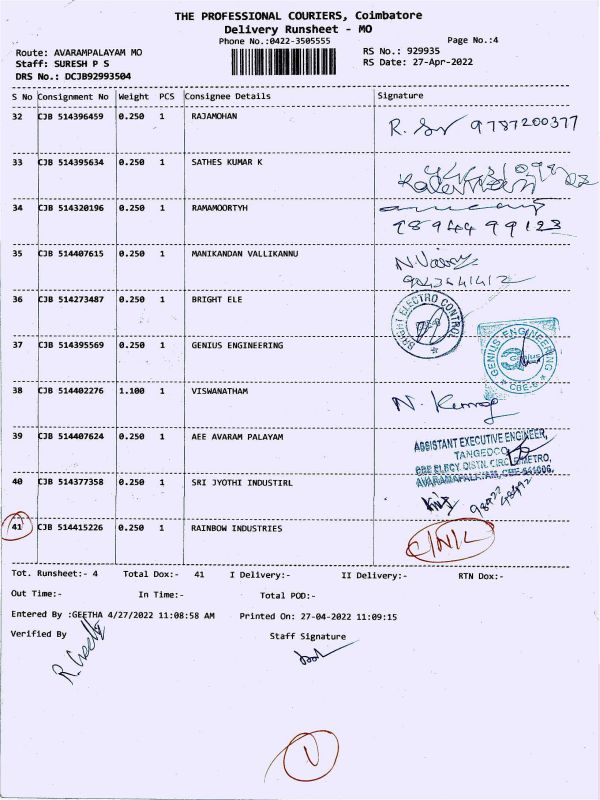 THE PROFESSIONAL COURIERS, Coimbatore
Delivery Runsheet - MO
Phone No.:0422-3505555 Page No.:4
Route: AVARAMPALAYAM MO RS No.: 929935
Staff: SURESH P S RS Date: 27-Apr-2022
DRS No.: DCJB92993504
S No Consignment No Weight PCS Consignee Details Signature
32 CJB 514396459 0.250 1 RAJAMOHAN R. 9787200377
33 CJB 514395634 0.250 1 SATHES KUMAR K
34 CJB 514320196 0.250 1 RAMAMOORTYH
9894499123
35 CJB 514407615 0.250 1 MANIKANDAN VALLIKANNU
36 CJB 514273487 0.250 1 BRIGHT ELE BRIGHT ELECTRO CONTROL
37 CJB 514395569 0.250 1 GENIUS ENGINEERING GENIUS ENGINEERING
CBE-6
38 CJB 514402276 1.100 1 VISWANATHAM
39 CJB 514407624 0.250 1 AEE AVARAM PALAYAM ASSISTANT EXECUTIVE ENGINEER,
TANGEDCO
CBE ELECY. DISTN. CIRCLE/METRO,
40 CJB 514377358 0.250 1 SRI JYOTHI INDUSTIRL AVARAMPALAYAM, CBE-641006.
41 CJB 514415226 0.250 1 RAINBOW INDUSTRIES C/N/L
Tot. Runsheet:- 4 Total Dox:- 41 I Delivery:- II Delivery:- RTN Dox:-
Out Time:- In Time:- Total POD:-
Entered By :GEETHA 4/27/2022 11:08:58 AM Printed On: 27-04-2022 11:09:15
Verified By Staff Signature